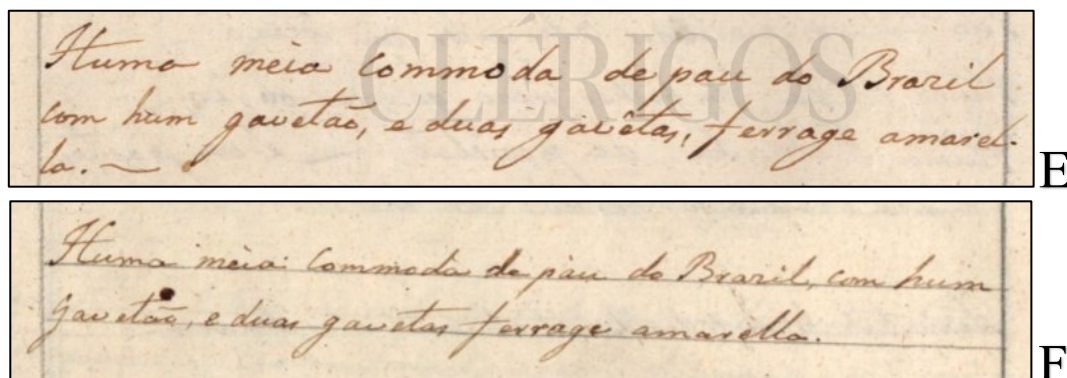 Huma meia Commoda de pau do Brazil
com hum gavetaõ, e duas gavêtas, ferrage amarel-
la. ~
CLÉRIGOS
E
Huma meia Commoda de pau do Brazil, com hum
gavetaõ, e duas gavetas ferrage amarella.
F